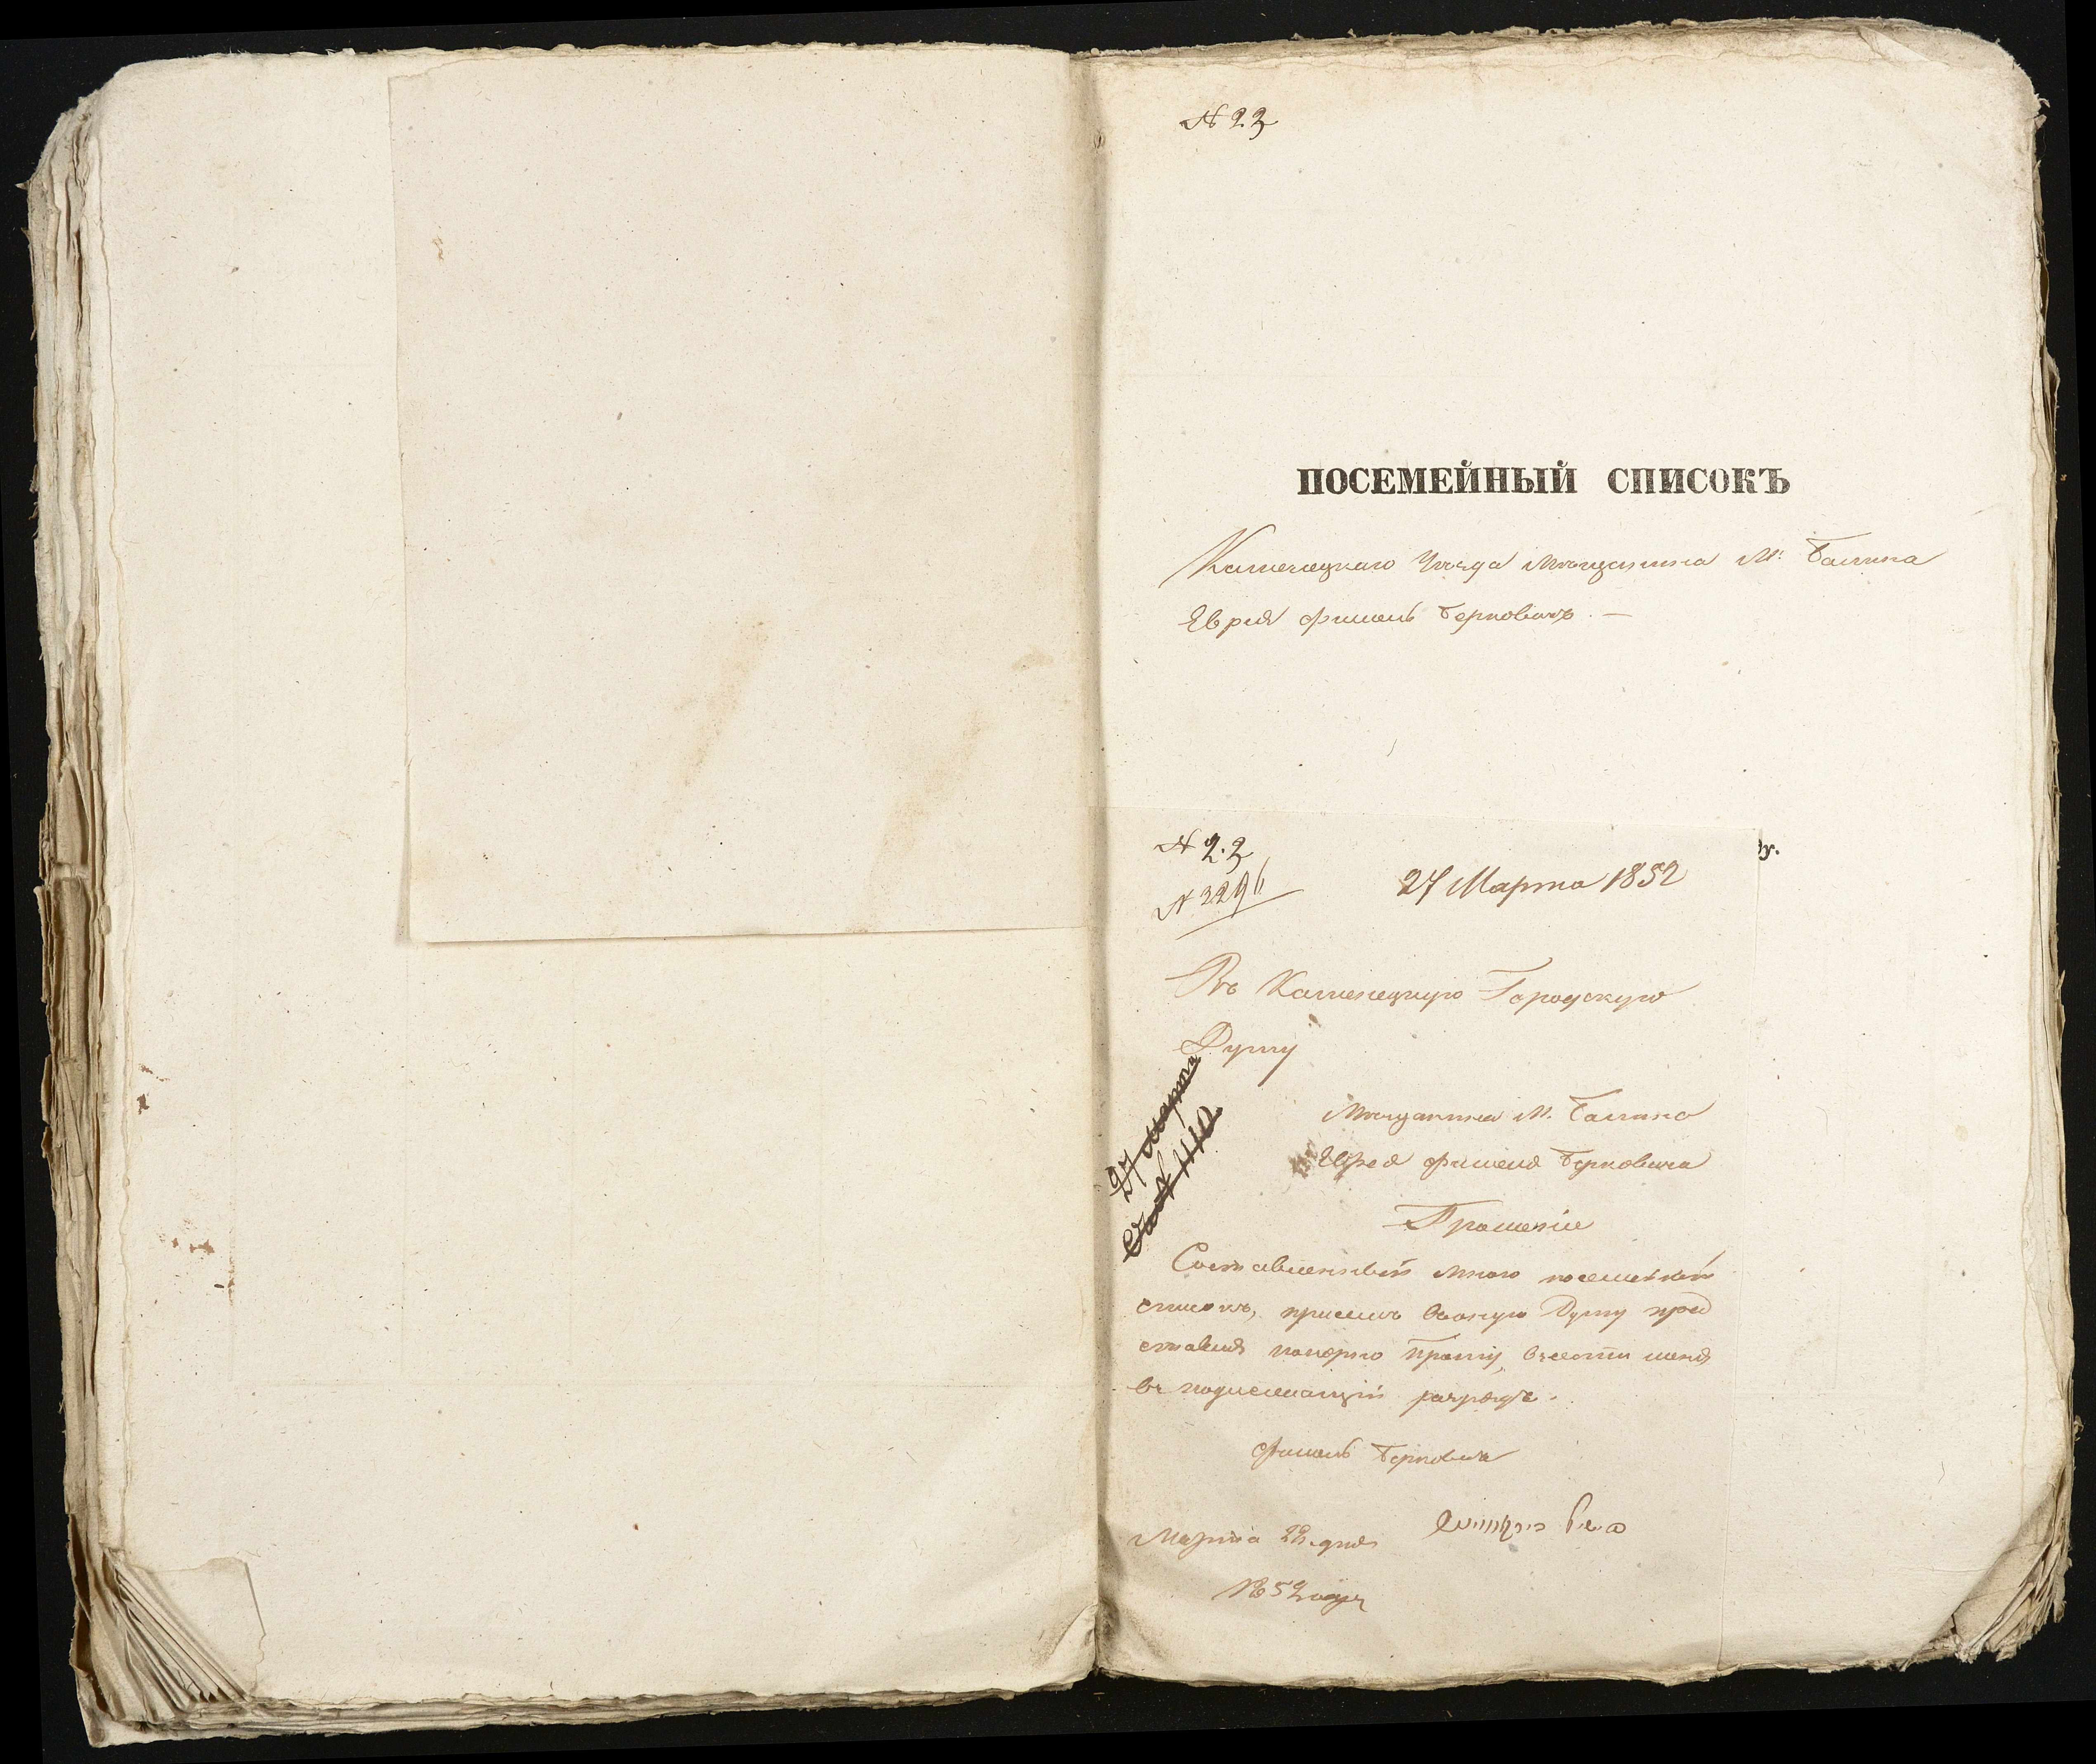 N 23
ПОСЕМЕЙНЫЙ СПИСОКЪ
Каменецкаго Уѣзда Мѣщанина М. Балина
Еврея Фишель Берковичъ. —
N 23
N 2296
27 Марта 1852
Въ Каменецкую Городскую
Думу
Мѣщанина М. Балина
Еврея Фишеля Берковича
Прошеніе
Составленный мною посемейный
списокъ, присемъ въ оную Думу пред
ставляя покорно прошу, внести меня
въ подлежащій разрядъ.
Фишель Берковичъ
Марта дня
1852 года
27 Марта
N 1110